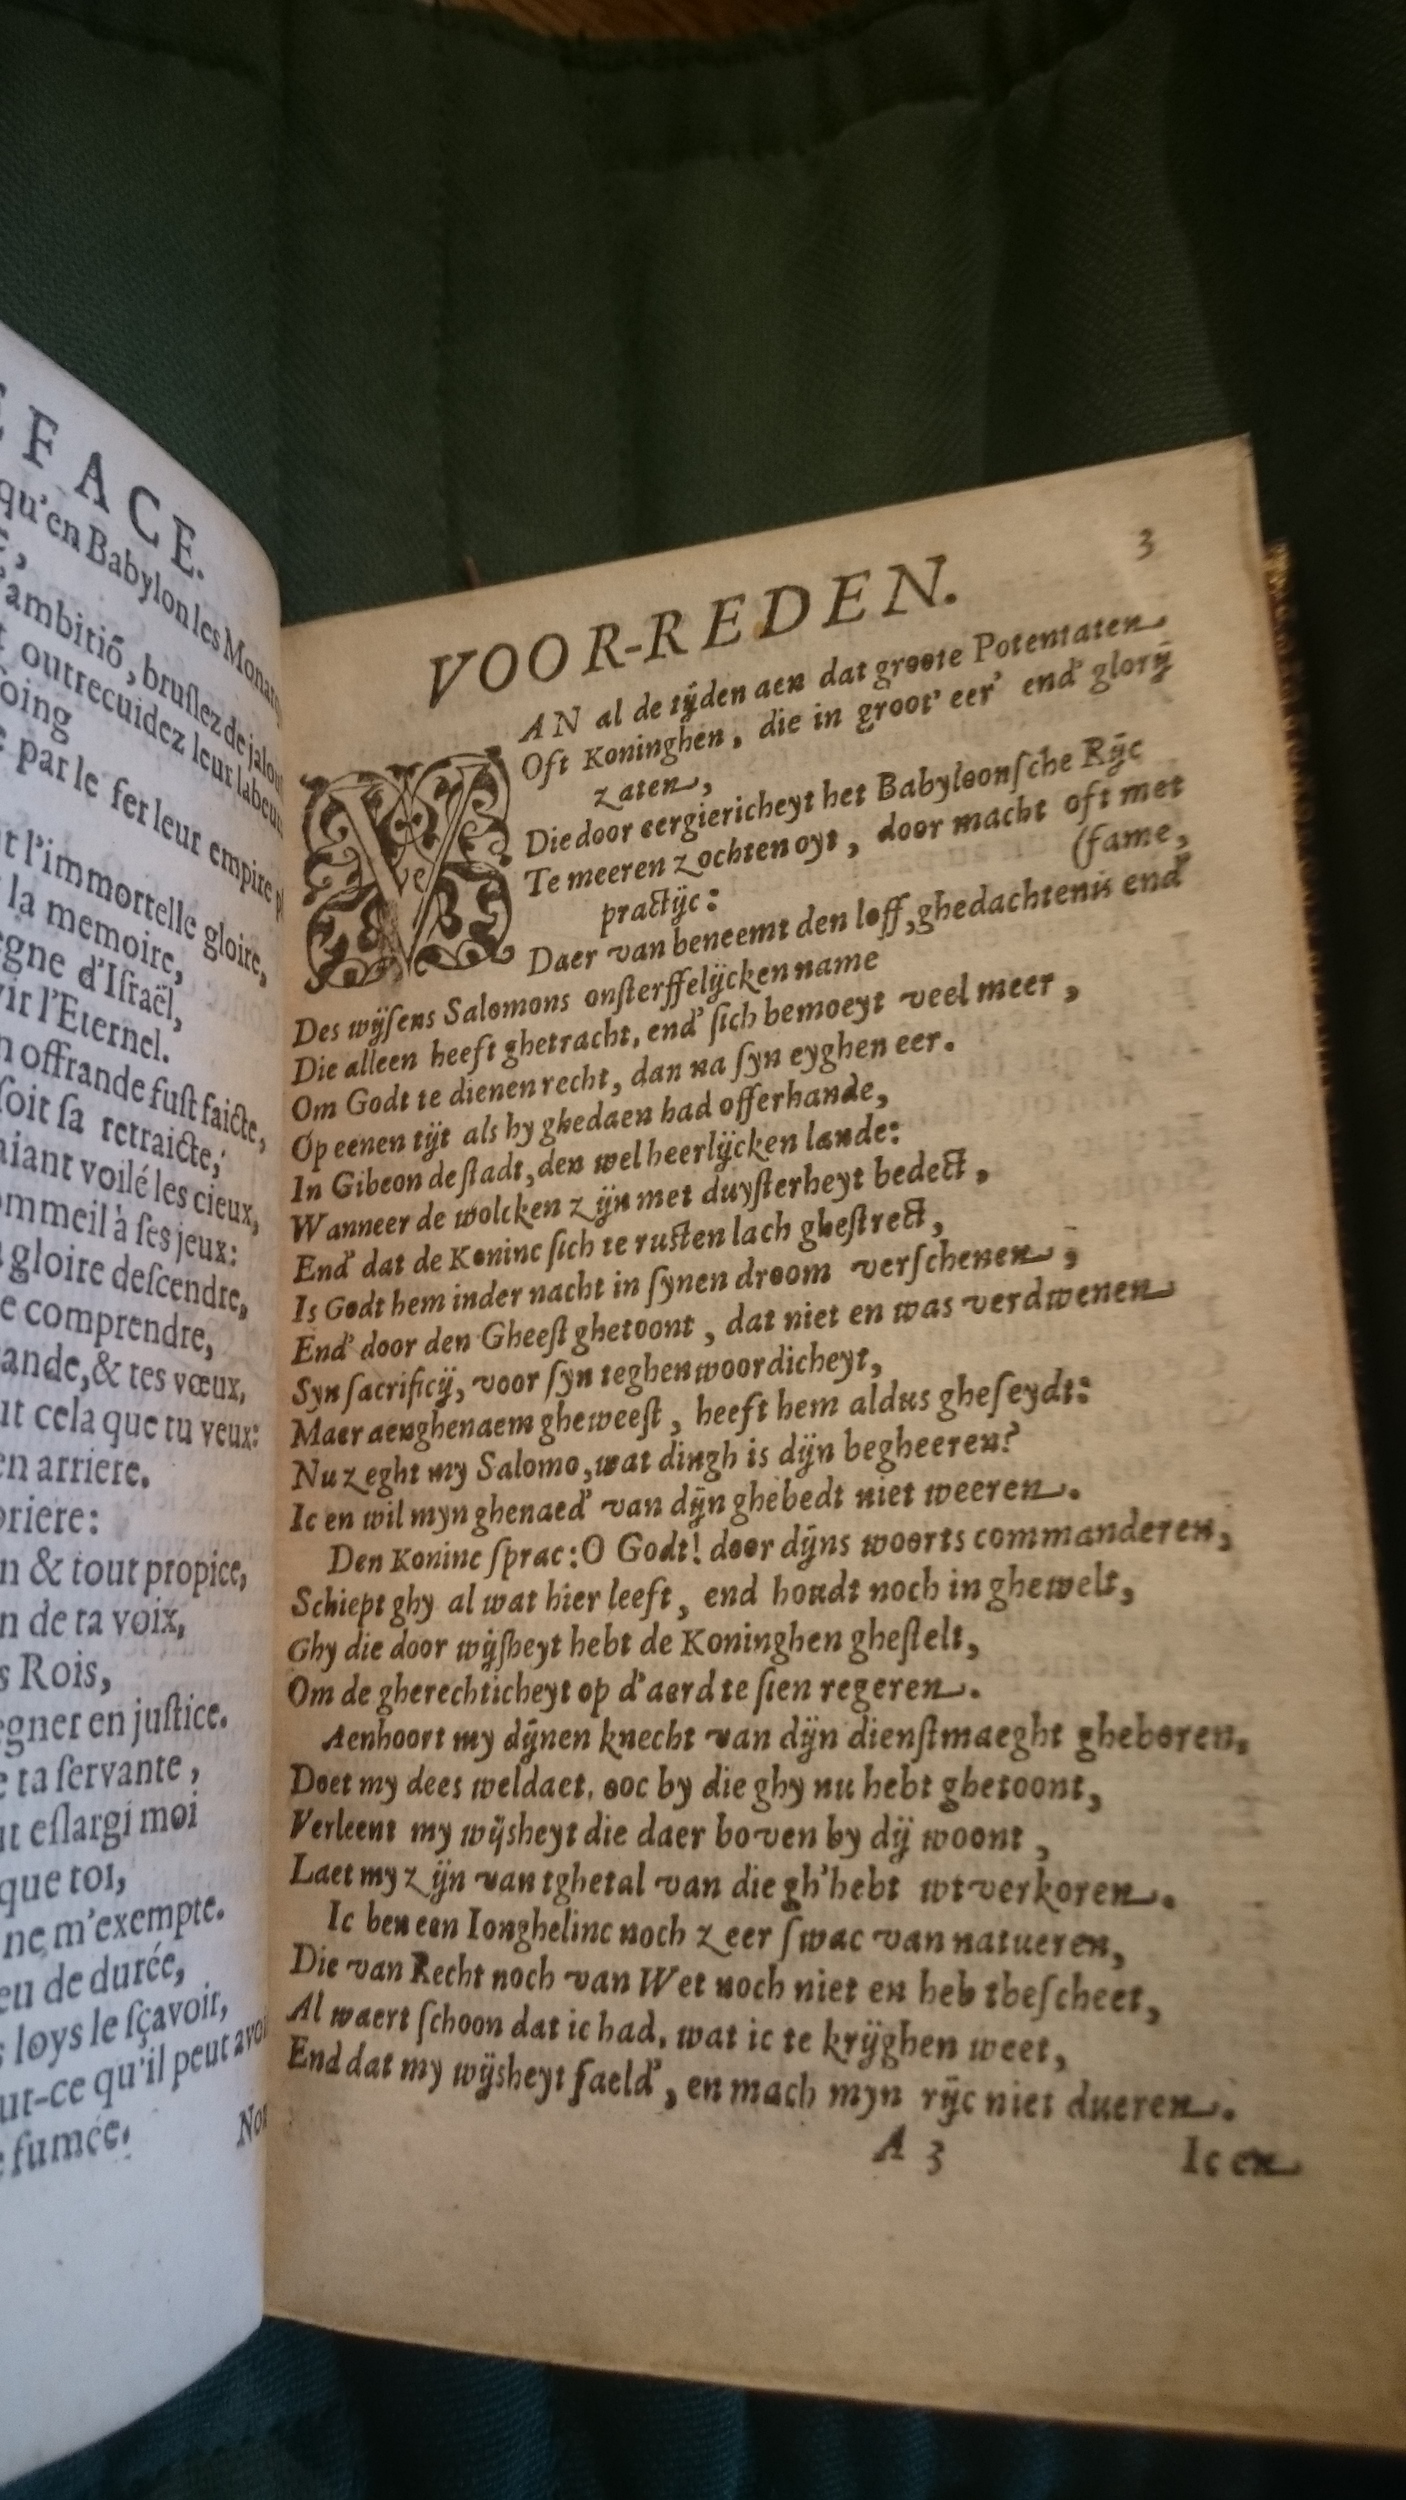 EFACE.
qu'en Babylon les Monarq
l'ambitiõ, bruslez de jalou
outrecuidez leur labeur
oing
par le fer leur empire pl
t l'immortelle gloire,
la memoire,
egne d'Israël,
vir l'Eternel.
n offrande fust faicte,
soit sa retraicte;
aiant voilé les cieux,
ommeil à ses jeux:
gloire descendre,
e comprendre,
ande, & tes vœux,
ut cela que tu veux:
en arriere.
priere:
n & tout propice,
n de ta voix,
s Rois,
egner en justice.
e ta servante,
ut eslargi moi
que toi,
ne m'exempte.
eu de durée,
s loys le sçavoir,
ut-ce qu'il peut avoi
fumée.
Non
3
VOOR-REDEN.
VAN al de tijden aen dat groote Potentaten.
Oft Koninghen, die in groot' eer' end' glorij
zaten,
Die door eergiericheyt het Babyloonsche Rijc
Te meeren zochten oyt, door macht oft met
practijc:
(fame,
Daer van beneemt den loff, ghedachtenis end'
Des wijsens Salomons onsterffelijcken name
Die alleen heeft ghetracht, end' sich bemoeyt veel meer,
Om Godt te dienen recht, dan na syn eyghen eer.
Op eenen tijt als hy ghedaen had offerhande,
In Gibeon de stadt, den wel heerlijcken lande:
Wanneer de wolcken zijn met duysterheyt bedect,
End' dat de Koninc sich te rusten lach ghestrect,
Is Godt hem inder nacht in synen droom verschenen,
End' door den Gheest ghetoont, dat niet en was verdwenen
Syn sacrificij, voor syn teghenwoordicheyt,
Maer aenghenaem gheweest, heeft hem aldus gheseydt:
Nu zeght my Salomo, wat dingh is dijn begheeren?
Ic en wil myn ghenaed' van dijn ghebedt niet weeren.
Den Koninc sprac: O Godt! door dijns woorts commanderen,
Schiept ghy al wat hier leeft, end houdt noch in ghewelt,
Ghy die door wijsheyt hebt de Koninghen ghestelt,
Om de gherechticheyt op d'aerd te sien regeren.
Aenhoort my dijnen knecht van dijn dienstmaeght gheboren,
Doet my dees weldaet, ooc by die ghy nu hebt ghetoont,
Verleent my wijsheyt die daer boven by dij woont,
Laet my zijn van tghetal van die gh'hebt wtverkoren.
Ic ben een Ionghelinc noch zeer swac van natueren,
Die van Recht noch van Wet noch niet en heb tbescheet,
Al waert schoon dat ic had, wat ic te krijghen weet,
End dat my wijsheyt faeld', en mach myn rijc niet dueren.
A 3
Ic en